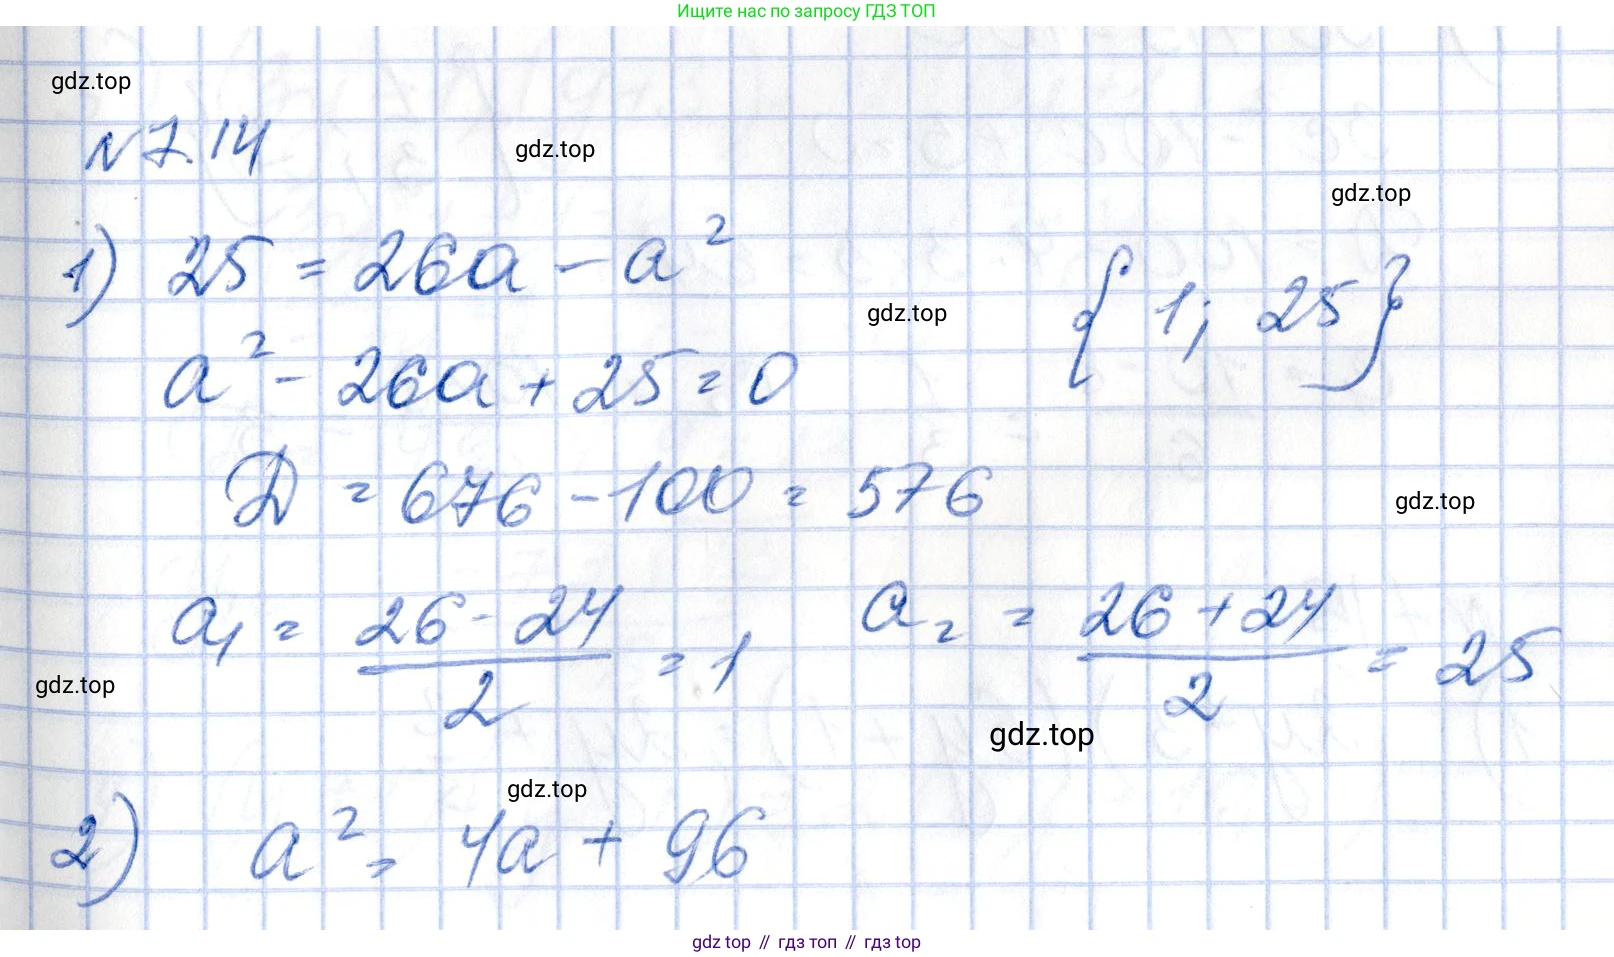 Ищите нас по запросу ГДЗ ТОП
gdz.top
N 7.14
gdz.top
gdz.top
1) 25 = 26a - a²
{1; 25}
gdz.top
a² - 26a + 25 = 0
D = 676 - 100 = 576
gdz.top
a₁ = (26 - 24)/2 = 1 a₂ = (26 + 24)/2 = 25
gdz.top
gdz.top
gdz.top
2) a² = 4a + 96
gdz top // гдз топ // гдз top